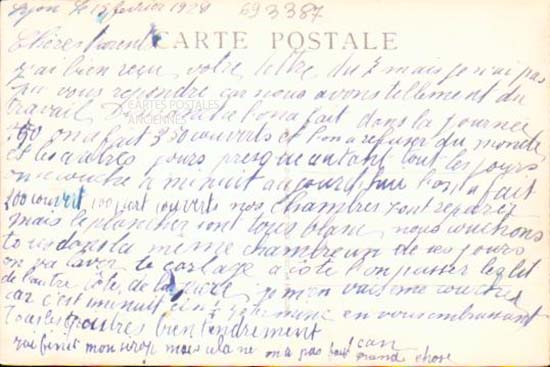 Lyon le 15 février 1928 693387
Chères parents
CARTE POSTALE
j'ai bien reçu votre lettre du 7 mais je n'ai pas
pu vous repondre car nous avons tellement du
travail on a fait dans la journée
CARTES POSTALES
ANCIENNES
on a fait 350 couverts et l'on a refuser du monde
et les autres jours presque autant tout les jours
on ce couche a minuit aujourd'hui l'on a fait
200 couvert nos chambres sont reparez
mais le plancher sont tous blanc nous couchons
tous dans la même chambre un de ces jours
on va laver le carlage a côté l'on passer le lit
de l'autre côte de la je m'en vais me coucher
car c'est minuit cinq en vous embrassant
tous les bien tendrement
j'ai finit mon sirop mais cela ne m'a pas fait
grand chose